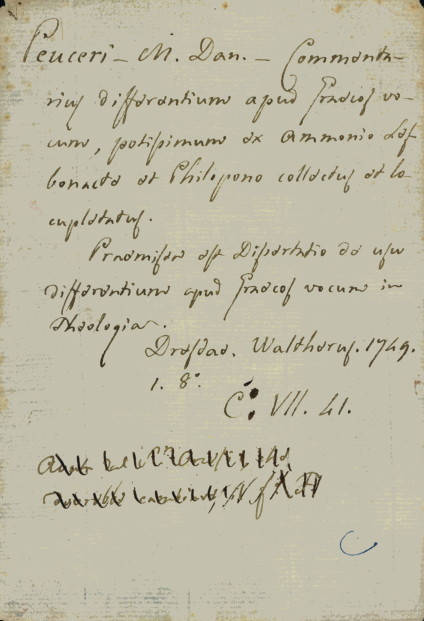 Peuceri – M. Dan. – Commenta-
rius differentium apud Graecos vo-
cum, potissimum ex Ammonio Les-
bonacte et Philopono collectus et lo-
cupletatus.
Praemissa est Dissertatio de usu
differentium apud Graecos vocum in
Theologia.
Dresdae. Waltherus. 1749.
1. 8°.
C. VII. 41.